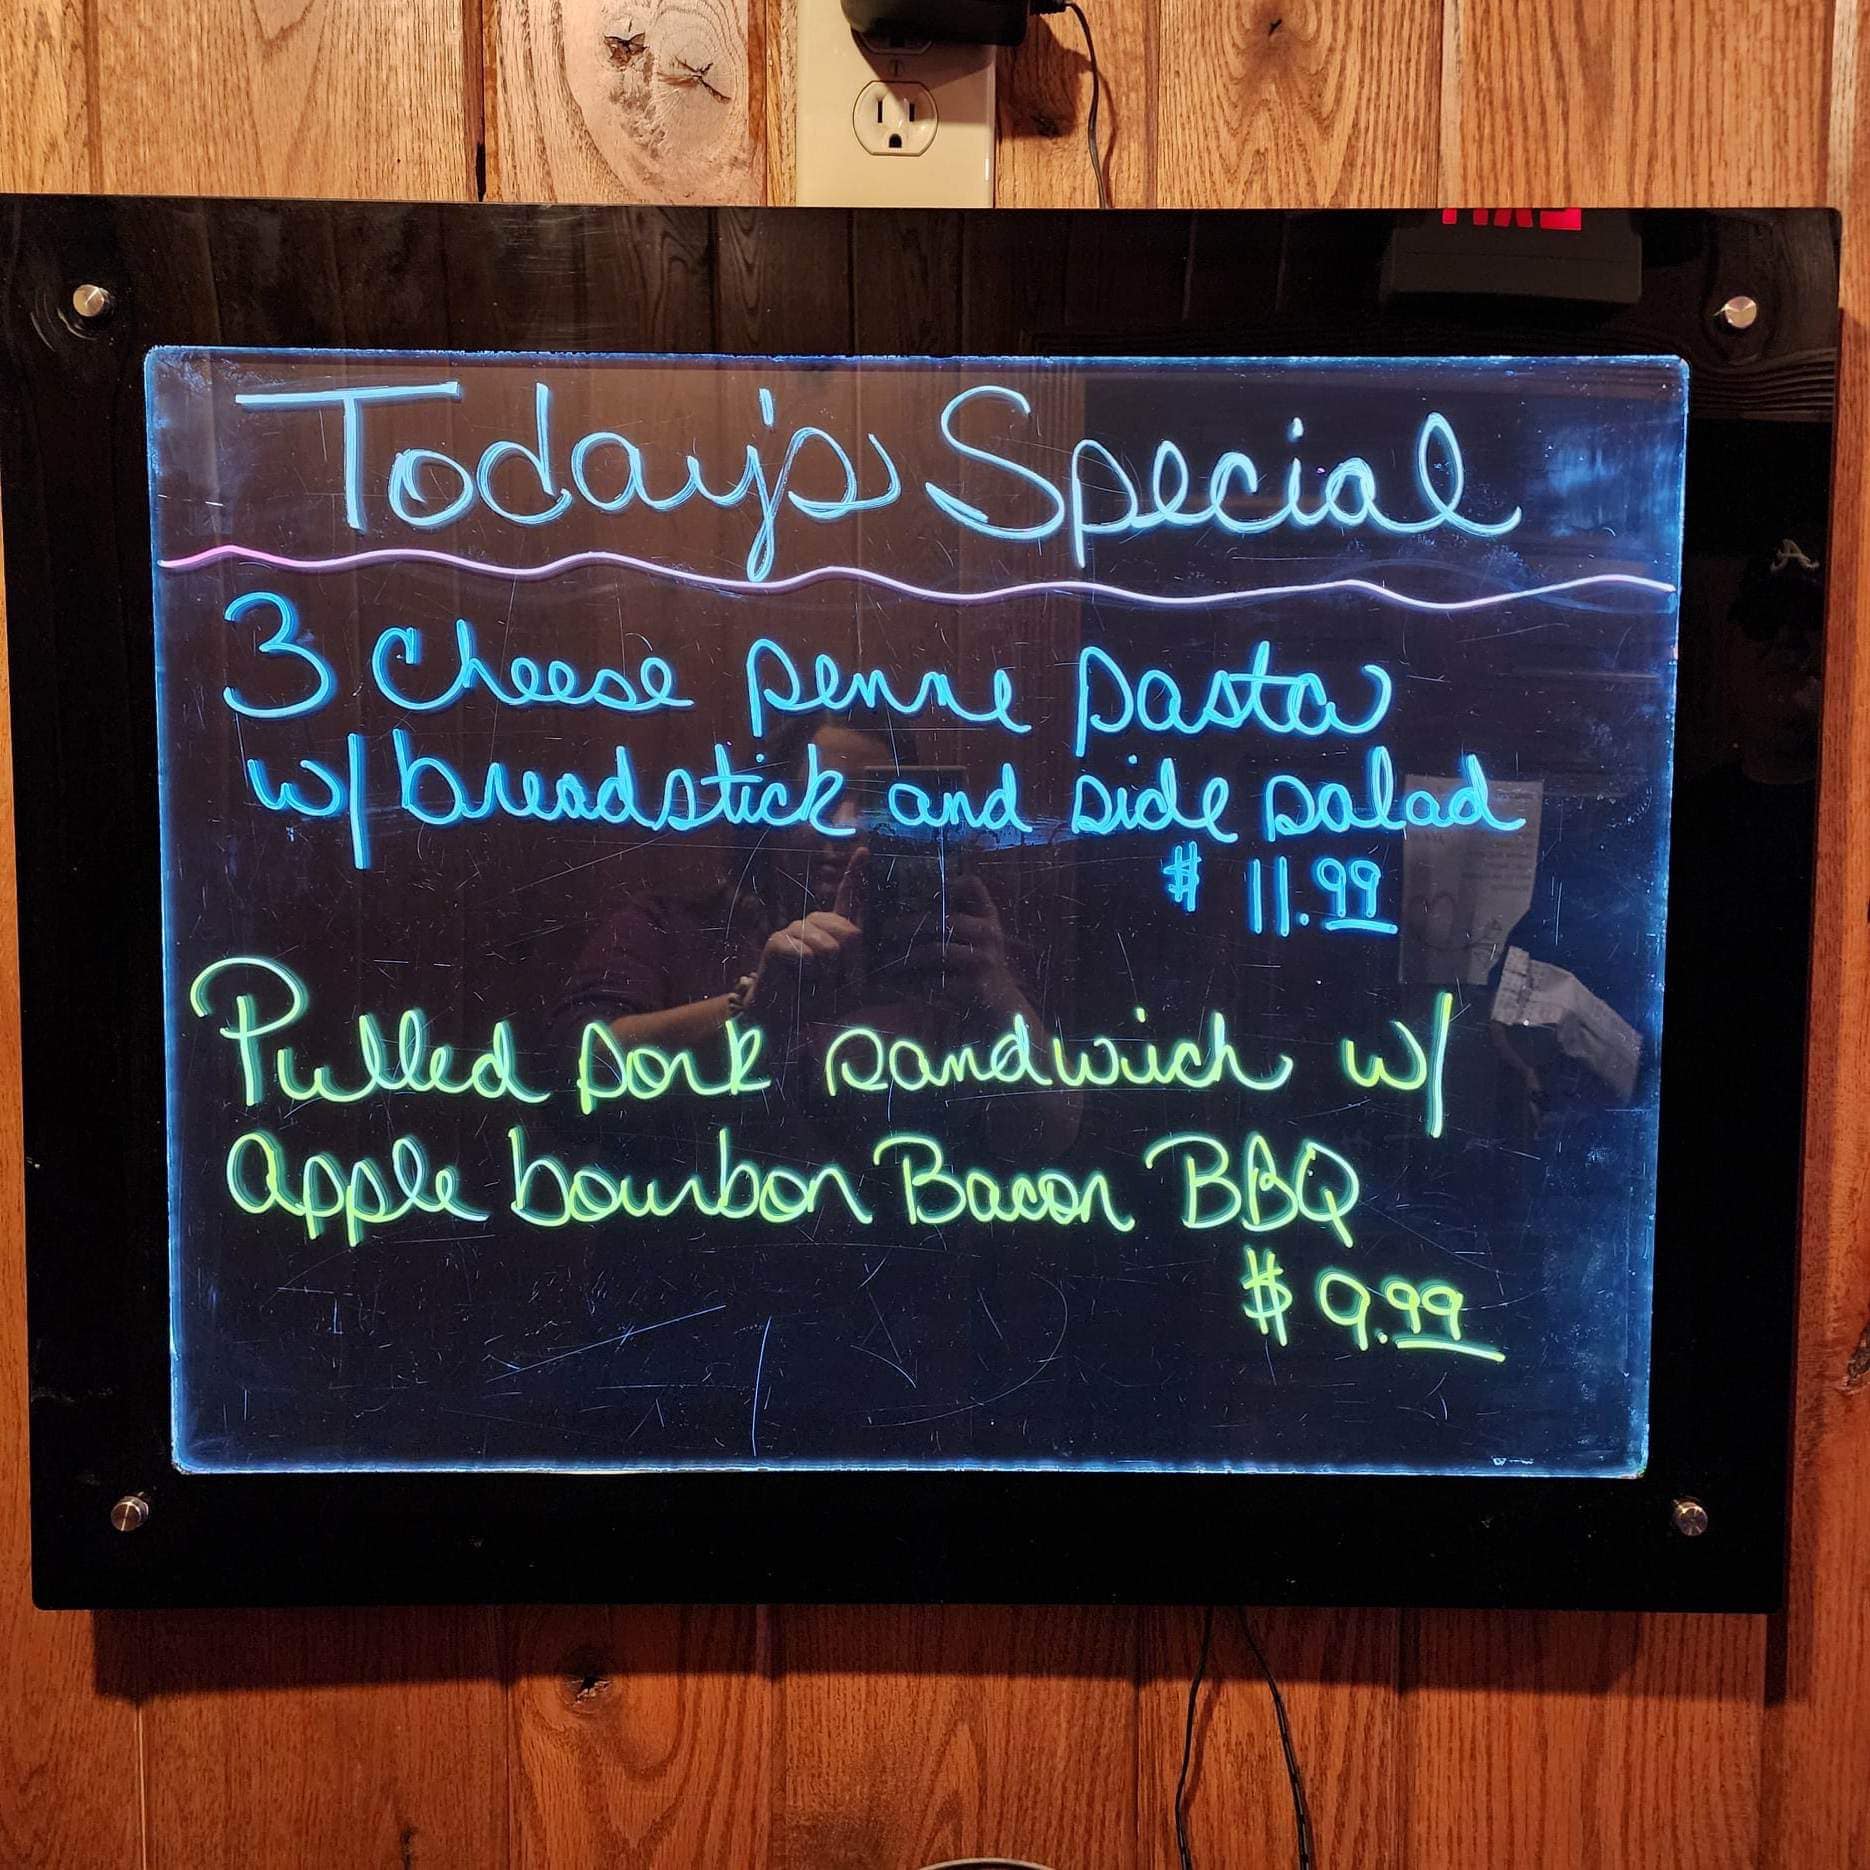 Today's Special
3 Cheese penne pasta
w/ breadstick and side salad
$ 11.99
Pulled pork sandwich w/
Apple bourbon Bacon BBQ
$ 9.99